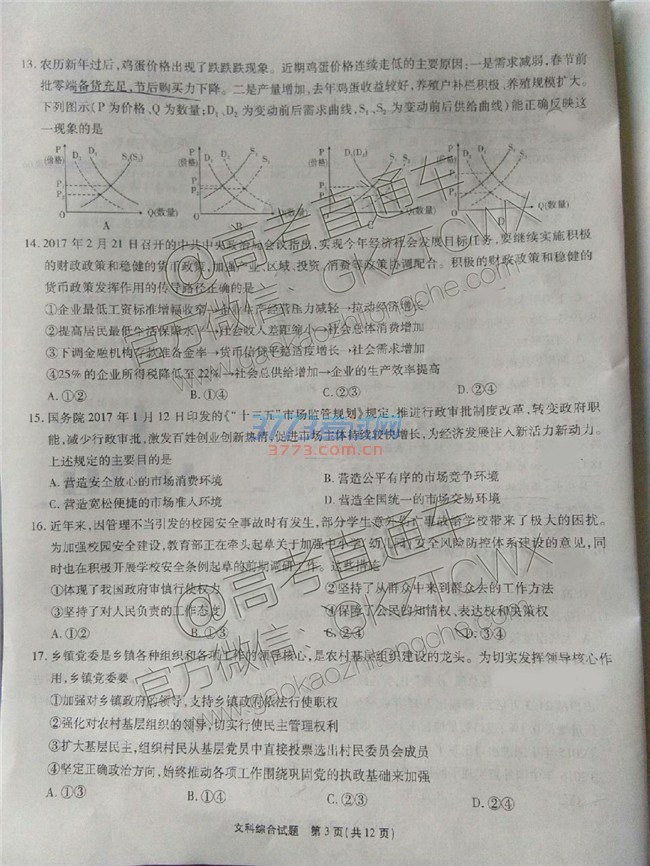 13. 农历新年过后,鸡蛋价格出现了跌跌跌现象。近期鸡蛋价格连续走低的主要原因:一是需求减弱,春节前
批零端备货充足,节后购买力下降。二是产量增加,去年鸡蛋收益较好,养殖户补栏积极、养殖规模扩大。
下列图示(P 为价格、Q 为数量;D₁、D₂ 为变动前后需求曲线,S₁、S₂ 为变动前后供给曲线)能正确反映这
一现象的是
P D₁ D₂ S₁(S₂) P S₁ S₂ P D₁(D₂) P D₂
(价格) (价格) (价格) (价格)
O Q(数量) O Q(数量) O Q(数量) O Q(数量)
A B C D
14. 2017 年 2 月 21 日召开的中共中央政治局会议指出,实现今年经济社会发展目标任务,要继续实施积极
的财政政策和稳健的货币政策,加强产业、区域、投资、消费等政策协调配合。积极的财政政策和稳健的
货币政策发挥作用的传导路径正确的是
①企业最低工资标准增幅收窄→企业生产经营压力减轻→拉动经济增长
②提高居民最低生活保障水平→社会收入差距缩小→社会总体消费增加
③下调金融机构存款准备金率→货币信贷平稳适度增长→社会需求增加
④25%的企业所得税降低至 22%→社会总供给增加→企业的生产效率提高
A. ①② B. ①④ C. ②③ D. ③④
15. 国务院 2017 年 1 月 12 日印发的《“十三五”市场监管规划》规定,推进行政审批制度改革,转变政府职
能,减少行政审批,激发百姓创业创新热情,促进市场主体持续较快增长,为经济发展注入新活力新动力。
上述规定的主要目的是
A. 营造安全放心的市场消费环境 B. 营造公平有序的市场竞争环境
C. 营造宽松便捷的市场准入环境 D. 营造全国统一的市场交易环境
16. 近年来,因管理不当引发的校园安全事故时有发生,部分学生意外伤亡事故给学校带来了极大的困扰。
为加强校园安全建设,教育部正在牵头起草关于加强中小学(幼儿园)安全风险防控体系建设的意见,同
时也在积极开展学校安全条例起草的前期调研工作。这些措施
①体现了我国政府审慎行使权力 ②坚持了从群众中来到群众去的工作方法
③坚持了对人民负责的工作态度 ④保障了公民的知情权、表达权和决策权
A. ①② B. ①③ C. ②④ D. ③④
17. 乡镇党委是乡镇各种组织和各项工作的领导核心,是农村基层组织建设的龙头。为切实发挥领导核心作
用,乡镇党委要
①加强对乡镇政府的领导,支持乡镇政府依法行使职权
②强化对农村基层组织的领导,切实行使民主管理权利
③扩大基层民主,组织村民从基层党员中直接投票选出村民委员会成员
④坚定正确政治方向,始终推动各项工作围绕巩固党的执政基础来加强
A. ①③ B. ①④ C. ②③ D. ②④
文科综合试题 第 3 页(共 12 页)
@高考直通车
官方微信: GKZTCWX
www.gaokaozhitongche.com
3773考试网
www.3773.com.cn
@高考直通车
官方微信: GKZTCWX
www.gaokaozhitongche.com